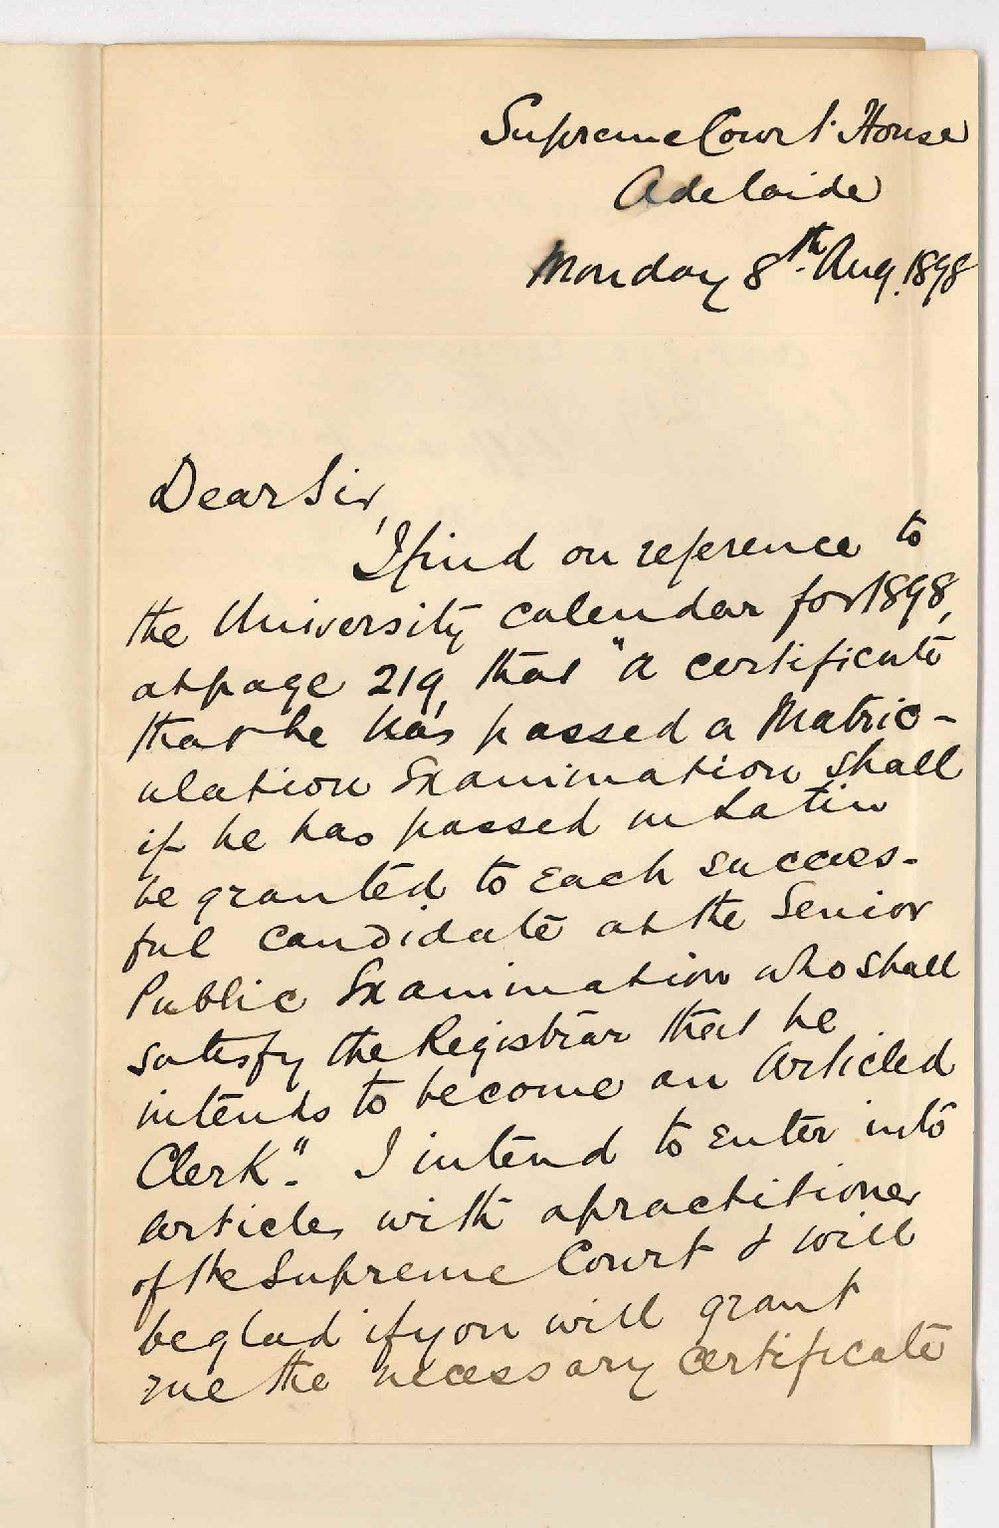 Supreme Court House
Adelaide
Monday 8th Aug. 1898
Dear Sir,
I find on reference to
the University calendar for 1898,
at page 219, that "a certificate
that he has passed a Matric-
ulation Examination shall
if he has passed in Latin
be granted to each succes-
ful candidate at the Senior
Public Examination who shall
satisfy the Registrar that he
intends to become an Articled
Clerk". I intend to enter into
articles with a practitioner
of the Supreme Court & will
be glad if you will grant
me the necessary certificate